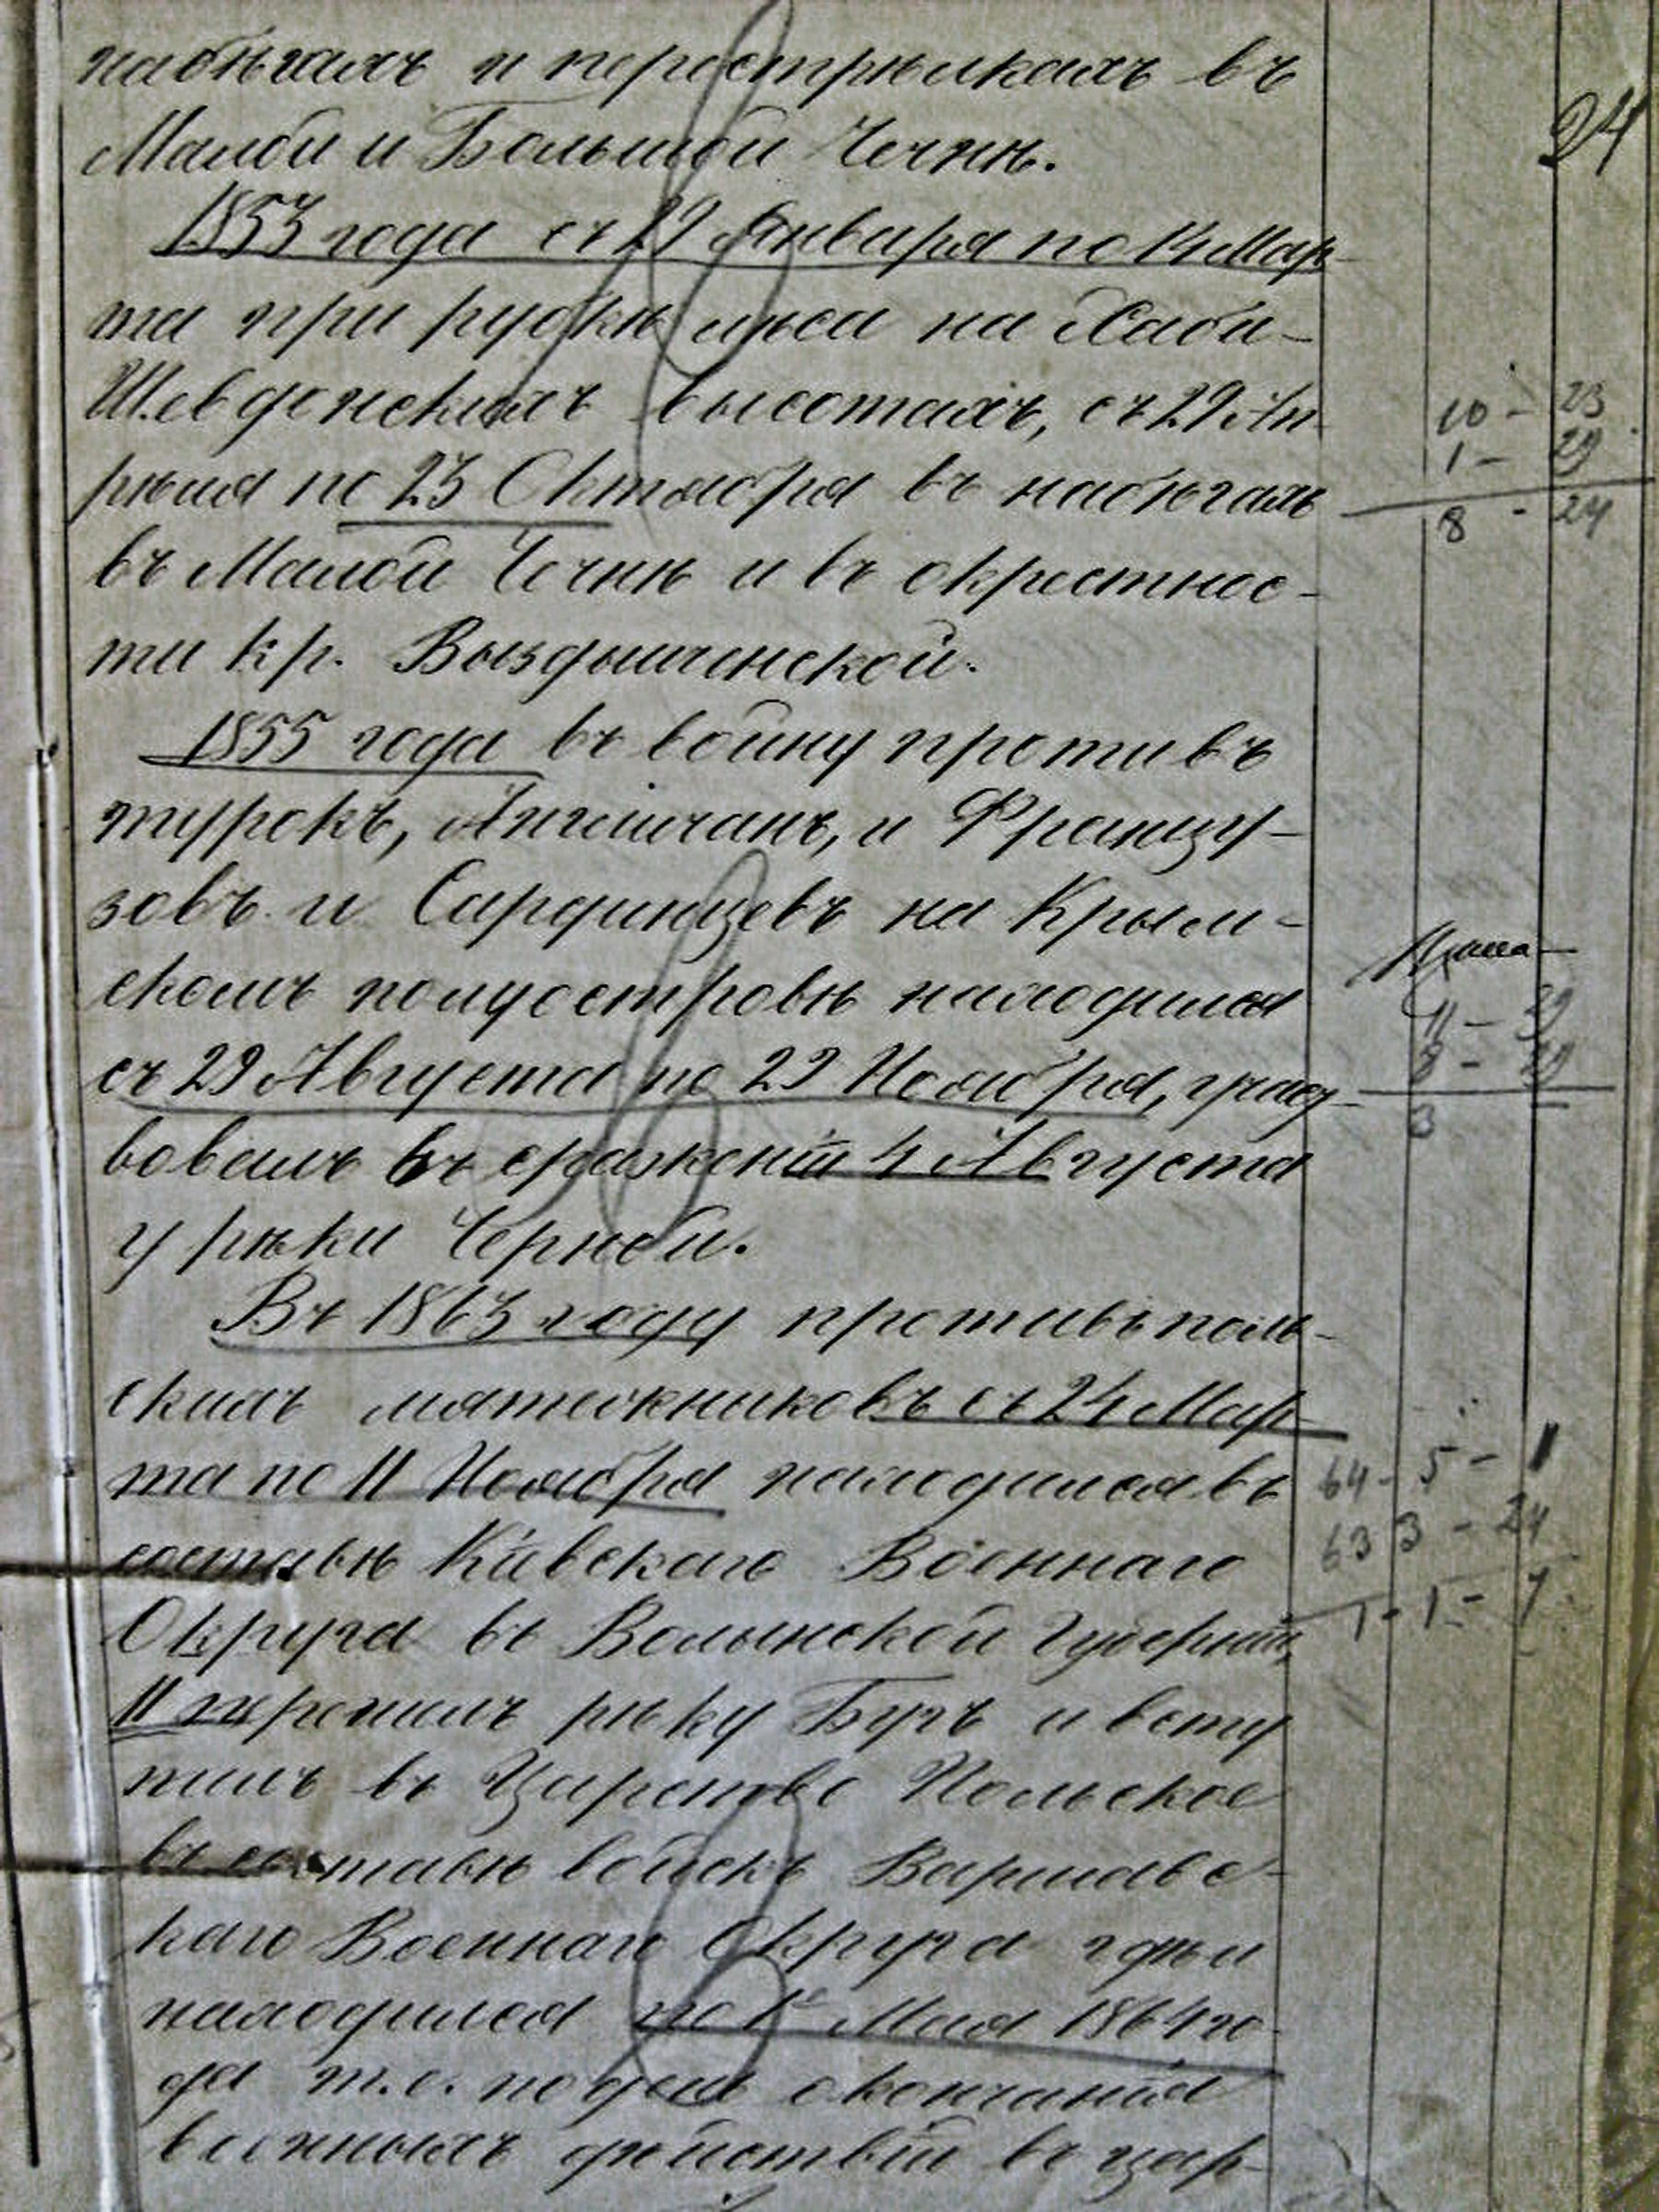 набѣгахъ и перестрѣлкахъ въ
Малой и Большой Чечнѣ.
24
1853 года съ 29 Января по 14 Мар-
та при рубкѣ лѣса на Хаби-
Шевдонскихъ высотахъ, съ 29 Ап-
рѣля по 23 Октября въ набѣгахъ
10 - 23
1 - 29
8 - 24
въ Малой Чечнѣ и въ окрестнос-
ти кр. Воздвиженской.
1855 года въ войну противъ
турокъ, Англичанъ, и Францу-
зовъ и Сардинцевъ на Крым-
скомъ полуостровѣ находился
съ 29 Августа по 29 Ноября, участ-
11 - 29
8 - 29
3
вовалъ въ сраженіи 4 Августа
у рѣки Черной.
Въ 1863 году противъ поль-
скихъ мятежниковъ съ 24 Мар-
та по 11 Ноября находился въ
64 - 5 - 1
63 3 - 24
1 - 1 - 7
составѣ Кіевскаго Военнаго
Округа въ Волынской Губерніи,
11 перешелъ рѣку Бугъ и всту
пилъ въ Царство Польское
въ составѣ войскъ Варшавс-
каго Военнаго Округа гдѣ и
находился по 1е Мая 1864 го-
да т.е. по день окончанія
военныхъ дѣйствій въ цар-